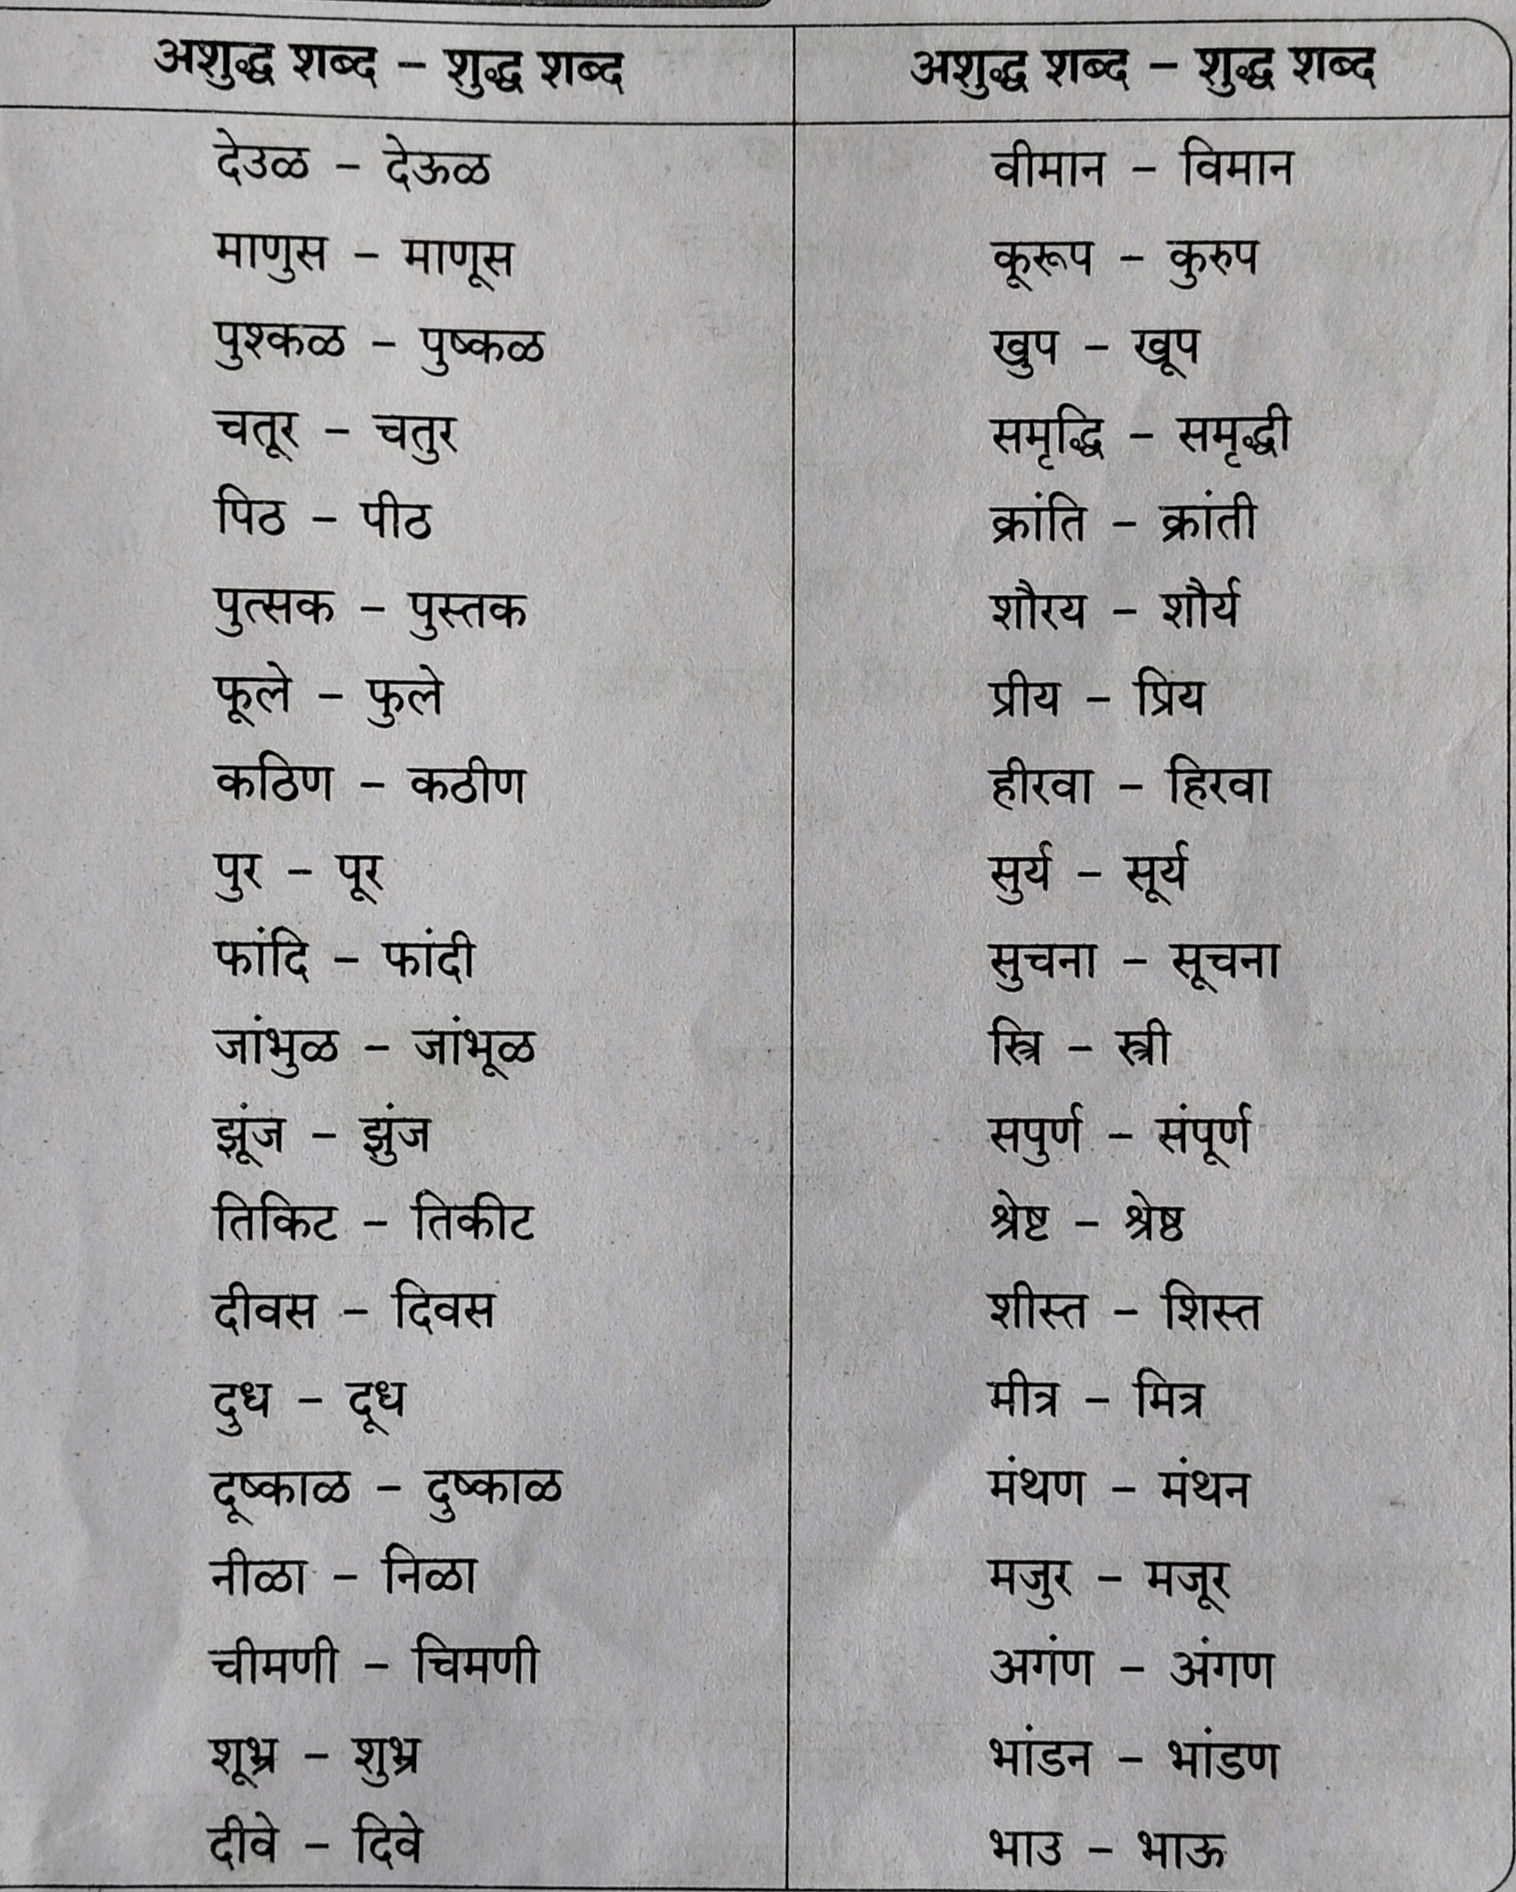 अशुद्ध शब्द – शुद्ध शब्द
देउळ – देऊळ
माणुस – माणूस
पुश्कळ – पुष्कळ
चतूर – चतुर
पिठ – पीठ
पुत्सक – पुस्तक
फूले – फुले
कठिण – कठीण
पुर – पूर
फांदि – फांदी
जांभुळ – जांभूळ
झूंज – झुंज
तिकिट – तिकीट
दीवस – दिवस
दुध – दूध
दूष्काळ – दुष्काळ
नीळा – निळा
चीमणी – चिमणी
शूभ्र – शुभ्र
दीवे – दिवे
अशुद्ध शब्द – शुद्ध शब्द
वीमान – विमान
कूरूप – कुरुप
खुप – खूप
समृद्धि – समृद्धी
क्रांति – क्रांती
शौरय – शौर्य
प्रीय – प्रिय
हीरवा – हिरवा
सुर्य – सूर्य
सुचना – सूचना
स्त्रि – स्त्री
सपुर्ण – संपूर्ण
श्रेष्ट – श्रेष्ठ
शीस्त – शिस्त
मीत्र – मित्र
मंथण – मंथन
मजुर – मजूर
अगंण – अंगण
भांडन – भांडण
भाउ – भाऊ